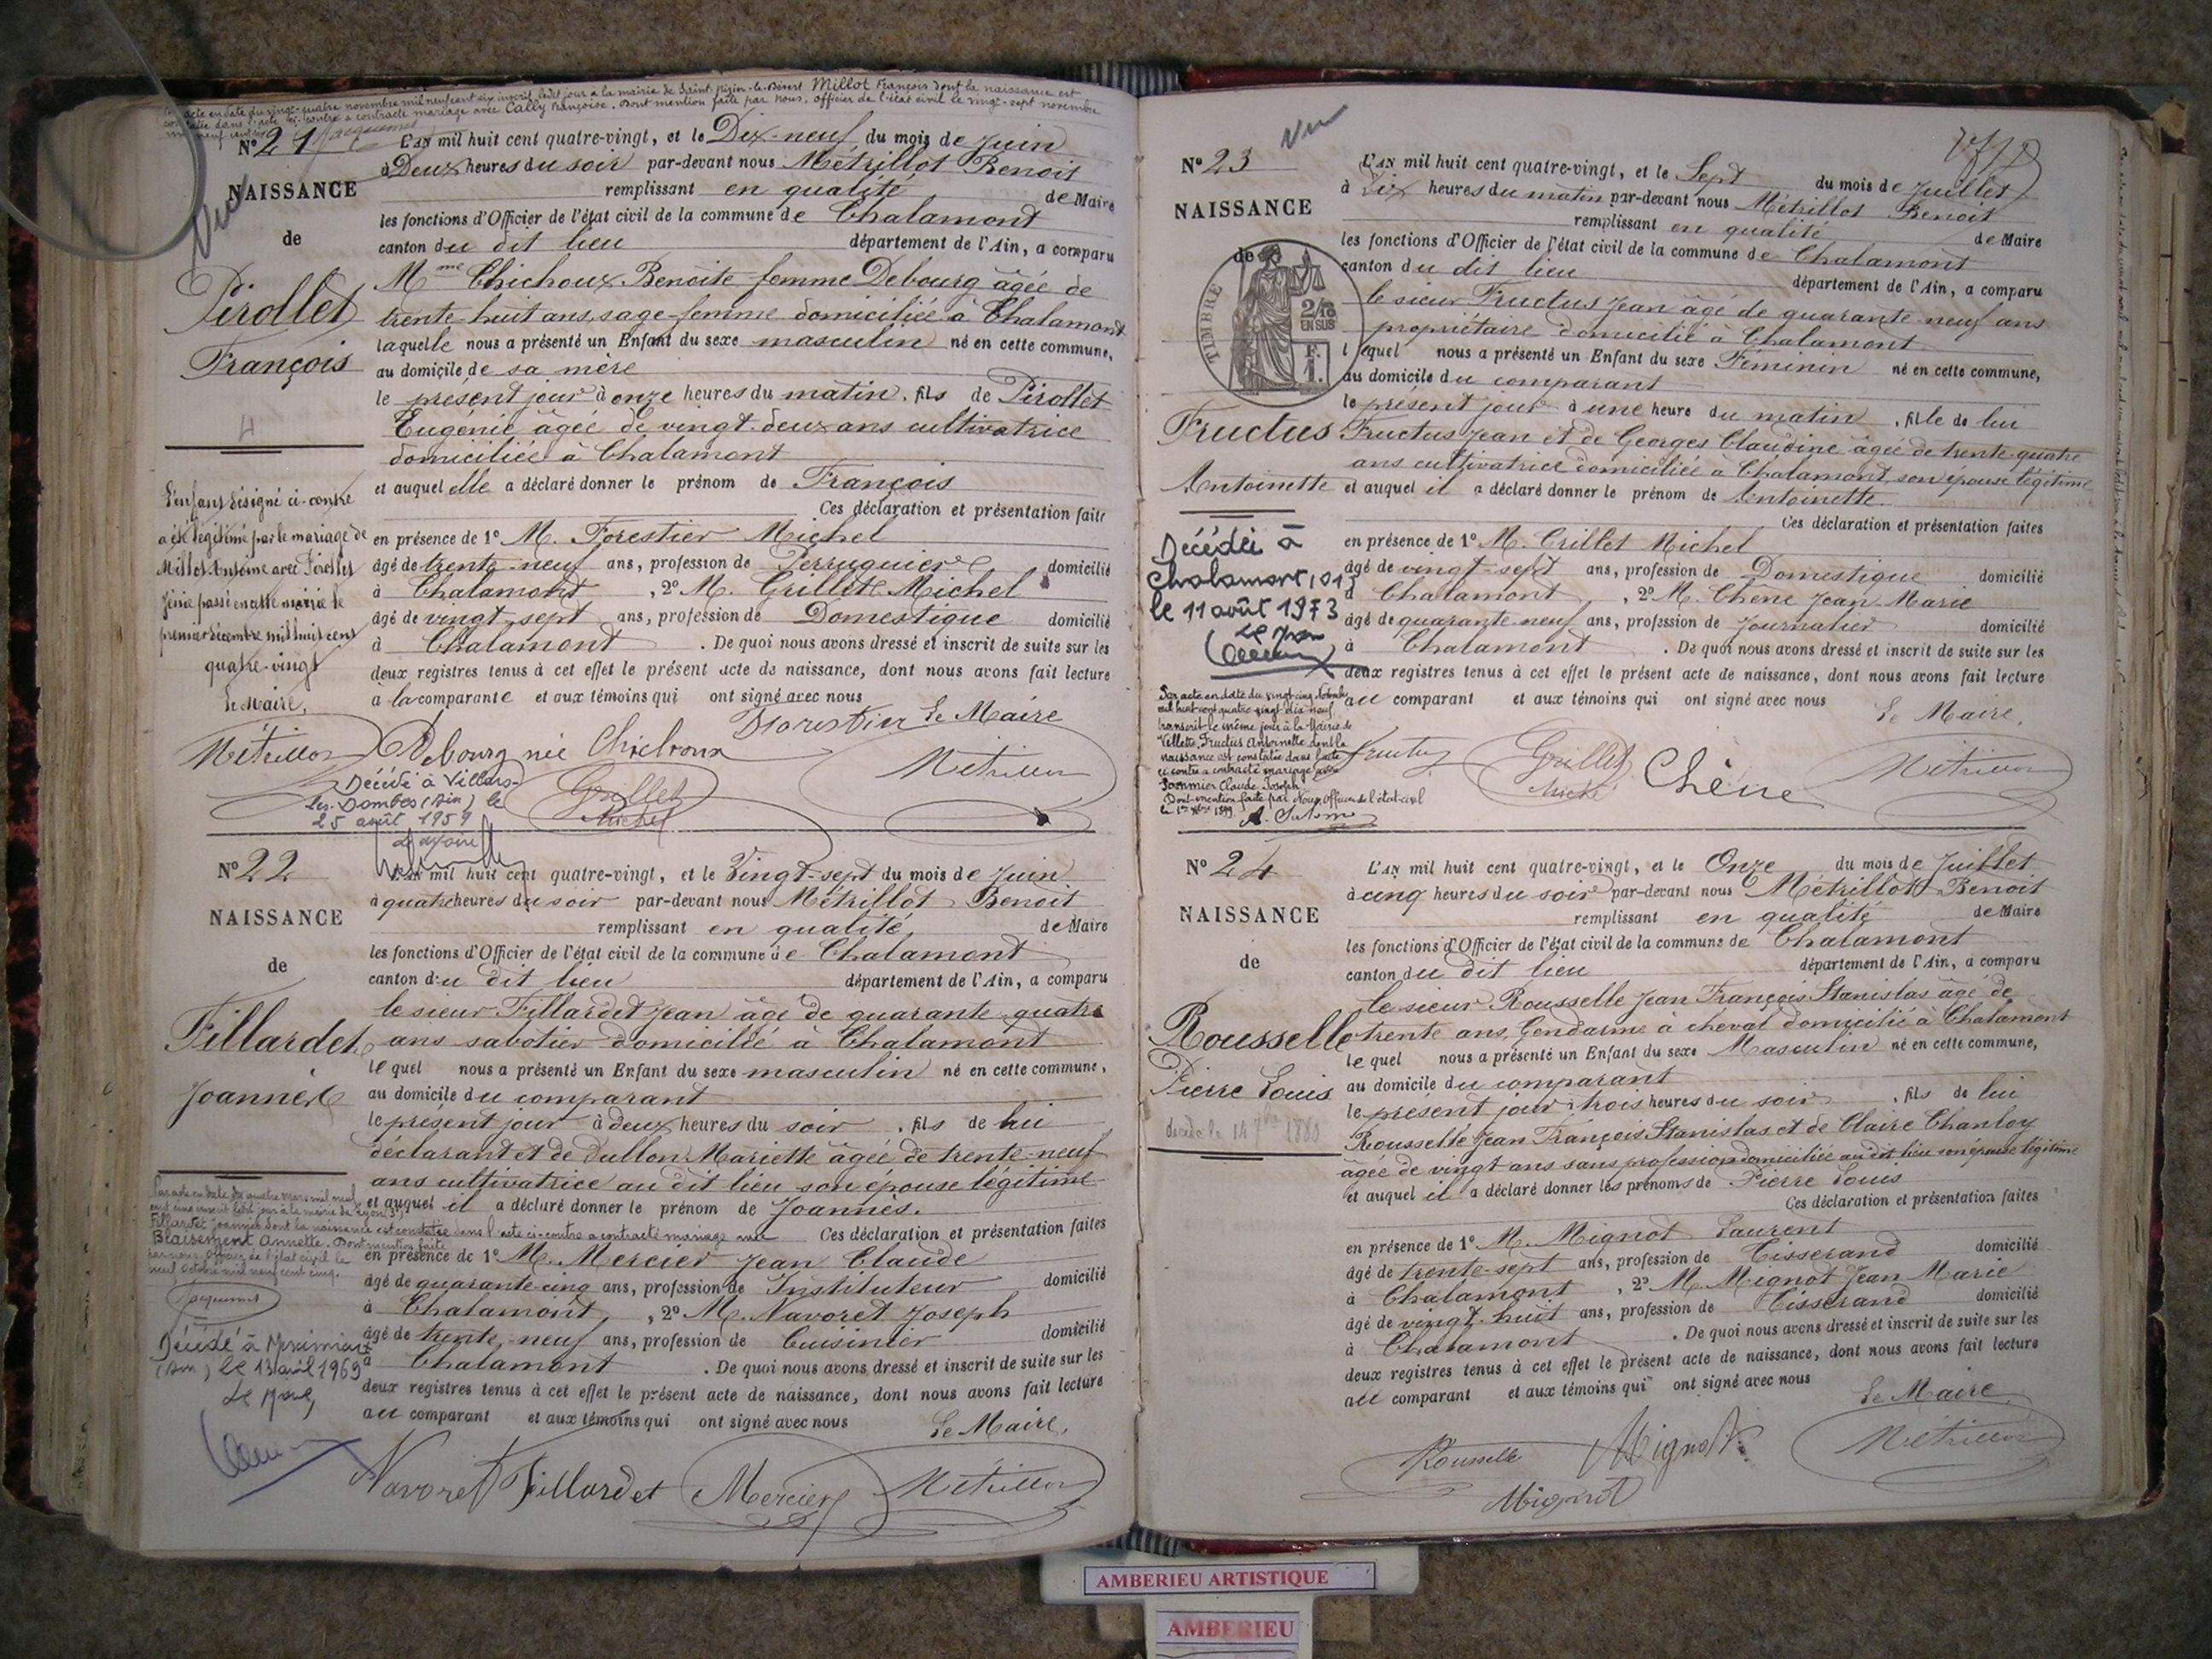 acte en date du vingt-quatre novembre mil neuf cent six inscrit ledit jour à la mairie de Saint-Nizier-le-Désert Millot François dont la naissance est
constatée dans l'acte ci-contre a contracté mariage avec Cally Françoise. Dont mention faite par nous, officier de l'état civil le vingt-sept novembre
mil neuf cent six
Jacquemet
N° 21
Vu
NAISSANCE
de
Pirollet
François
L'enfant désigné ci-contre
a été légitimé par le mariage de
Millot Antoine avec Pirollet
Génie passé en cette mairie le
premier décembre mil huit cent
quatre-vingt
Le Maire,
Métrillot
L'AN mil huit cent quatre-vingt, et le Dix-neuf du mois de Juin
à Deux heures du soir par-devant nous Métrillot Benoit
remplissant en qualité de Maire
les fonctions d'Officier de l'état civil de la commune de Chalamont
canton du dit lieu département de l'Ain, a comparu
Mme Chichoux Benoite femme Debourg âgée de
trente-huit ans, sage-femme domiciliée à Chalamont
laquelle nous a présenté un Enfant du sexe masculin né en cette commune,
au domicile de sa mère
le présent jour à onze heures du matin, fils de Pirollet
Eugénie âgée de vingt-deux ans cultivatrice
domiciliée à Chalamont
et auquel elle a déclaré donner le prénom de François
Ces déclaration et présentation faites
en présence de 1° M. Forestier Michel
âgé de trente-neuf ans, profession de Perruquier domicilié
à Chalamont, 2° M. Grillet Michel
âgé de vingt-sept ans, profession de Domestique domicilié
à Chalamont. De quoi nous avons dressé et inscrit de suite sur les
deux registres tenus à cet effet le présent acte de naissance, dont nous avons fait lecture
a la comparante et aux témoins qui ont signé avec nous
Le Maire
Debourg née Chichoux
Forestier
Grillet
Michel
Métrillot
Décédé à Villars-
les-Dombes (Ain) le
25 août 1959
Le Maire
N° 22
NAISSANCE
de
Fillardet
Joannés
Par acte en date du quatre mars mil neuf
cent cinq inscrit ledit jour à la mairie de Lyon
Fillardet Joannés dont la naissance est constatée dans l'acte ci-contre a contracté mariage avec
Blaisement Annette. Dont mention faite
par nous, officier de l'état civil le
neuf octobre mil neuf cent cinq.
Jacquemet
Décédé à Meximieux
(Ain) le 13 avril 1969
Le Maire,
L'AN mil huit cent quatre-vingt, et le Vingt-sept du mois de Juin
à quatre heures du soir par-devant nous Métrillot Benoit
remplissant en qualité de Maire
les fonctions d'Officier de l'état civil de la commune de Chalamont
canton du dit lieu département de l'Ain, a comparu
le sieur Fillardet Jean âgé de quarante-quatre
ans sabotier domicilié à Chalamont
le quel nous a présenté un Enfant du sexe masculin né en cette commune,
au domicile du comparant
le présent jour à deux heures du soir, fils de lui
déclarant et de Dullon Mariette âgée de trente-neuf
ans cultivatrice au dit lieu son épouse légitime
et auquel il a déclaré donner le prénom de Joannés.
Ces déclaration et présentation faites
en présence de 1° M. Mercier Jean Claude
âgé de quarante-cinq ans, profession de Instituteur domicilié
à Chalamont, 2° M. Navoret Joseph
âgé de trente-neuf ans, profession de Cuisinier domicilié
à Chalamont. De quoi nous avons dressé et inscrit de suite sur les
deux registres tenus à cet effet le présent acte de naissance, dont nous avons fait lecture
au comparant et aux témoins qui ont signé avec nous
Le Maire,
Navoret Fillardet Mercier Métrillot
N° 23
Vu
NAISSANCE
de
TIMBRE
2/10
EN SUS
F.
1.
Fructus
Antoinette
Décédée à
Chalamont, 01
le 11 août 1973
Le Maire
Par acte en date du vingt cinq Novembre
mil huit cent quatre-vingt-dix-neuf
transcrit le même jour à la Mairie de
Villette, Fructus Antoinette dont la
naissance est constatée dans l'acte
ci contre a contracté mariage avec
Pommier Claude Joseph
Dont mention faite par Nous Officier de l'état civil
L'AN mil huit cent quatre-vingt, et le Sept du mois de Juillet
à Dix heures du matin par-devant nous Métrillot Benoit
remplissant en qualité de Maire
les fonctions d'Officier de l'état civil de la commune de Chalamont
canton du dit lieu département de l'Ain, a comparu
le sieur Fructus Jean âgé de quarante-neuf ans
propriétaire domicilié à Chalamont
lequel nous a présenté un Enfant du sexe Féminin né en cette commune,
au domicile du comparant
le présent jour à une heure du matin, fille de lui
Fructus Jean et de Georges Claudine âgée de trente-quatre
ans cultivatrice domiciliée à Chalamont, son épouse légitime
et auquel il a déclaré donner le prénom de Antoinette.
Ces déclaration et présentation faites
en présence de 1° M. Grillet Michel
âgé de vingt-sept ans, profession de Domestique domicilié
à Chalamont, 2° M. Chêne Jean Marie
âgé de quarante-neuf ans, profession de Journalier domicilié
à Chalamont. De quoi nous avons dressé et inscrit de suite sur les
deux registres tenus à cet effet le présent acte de naissance, dont nous avons fait lecture
au comparant et aux témoins qui ont signé avec nous
Le Maire,
Fructus Grillet Michel Chêne Métrillot
N° 24
NAISSANCE
de
Rousselle
Pierre Louis
décédé le 14 7bre 1880
L'AN mil huit cent quatre-vingt, et le Onze du mois de Juillet
à cinq heures du soir par-devant nous Métrillot Benoit
remplissant en qualité de Maire
les fonctions d'Officier de l'état civil de la commune de Chalamont
canton du dit lieu département de l'Ain, a comparu
le sieur Rousselle Jean François Stanislas âgé de
trente ans, Gendarme à cheval domicilié à Chalamont
le quel nous a présenté un Enfant du sexe Masculin né en cette commune,
au domicile du comparant
le présent jour à trois heures du soir, fils de lui
Rousselle Jean François Stanislas et de Claire Chanloy
agée de vingt ans sans profession domiciliée au dit lieu son épouse légitime
et auquel il a déclaré donner les prénoms de Pierre Louis
Ces déclaration et présentation faites
en présence de 1° M. Mignot Laurent
âgé de trente-sept ans, profession de Tisserand domicilié
à Chalamont, 2° M. Mignot Jean Marie
âgé de vingt-huit ans, profession de Tisserand domicilié
à Chalamont. De quoi nous avons dressé et inscrit de suite sur les
deux registres tenus à cet effet le présent acte de naissance, dont nous avons fait lecture
au comparant et aux témoins qui ont signé avec nous
Le Maire,
Rousselle Mignot Métrillot
Mignot
AMBERIEU ARTISTIQUE
AMBERIEU